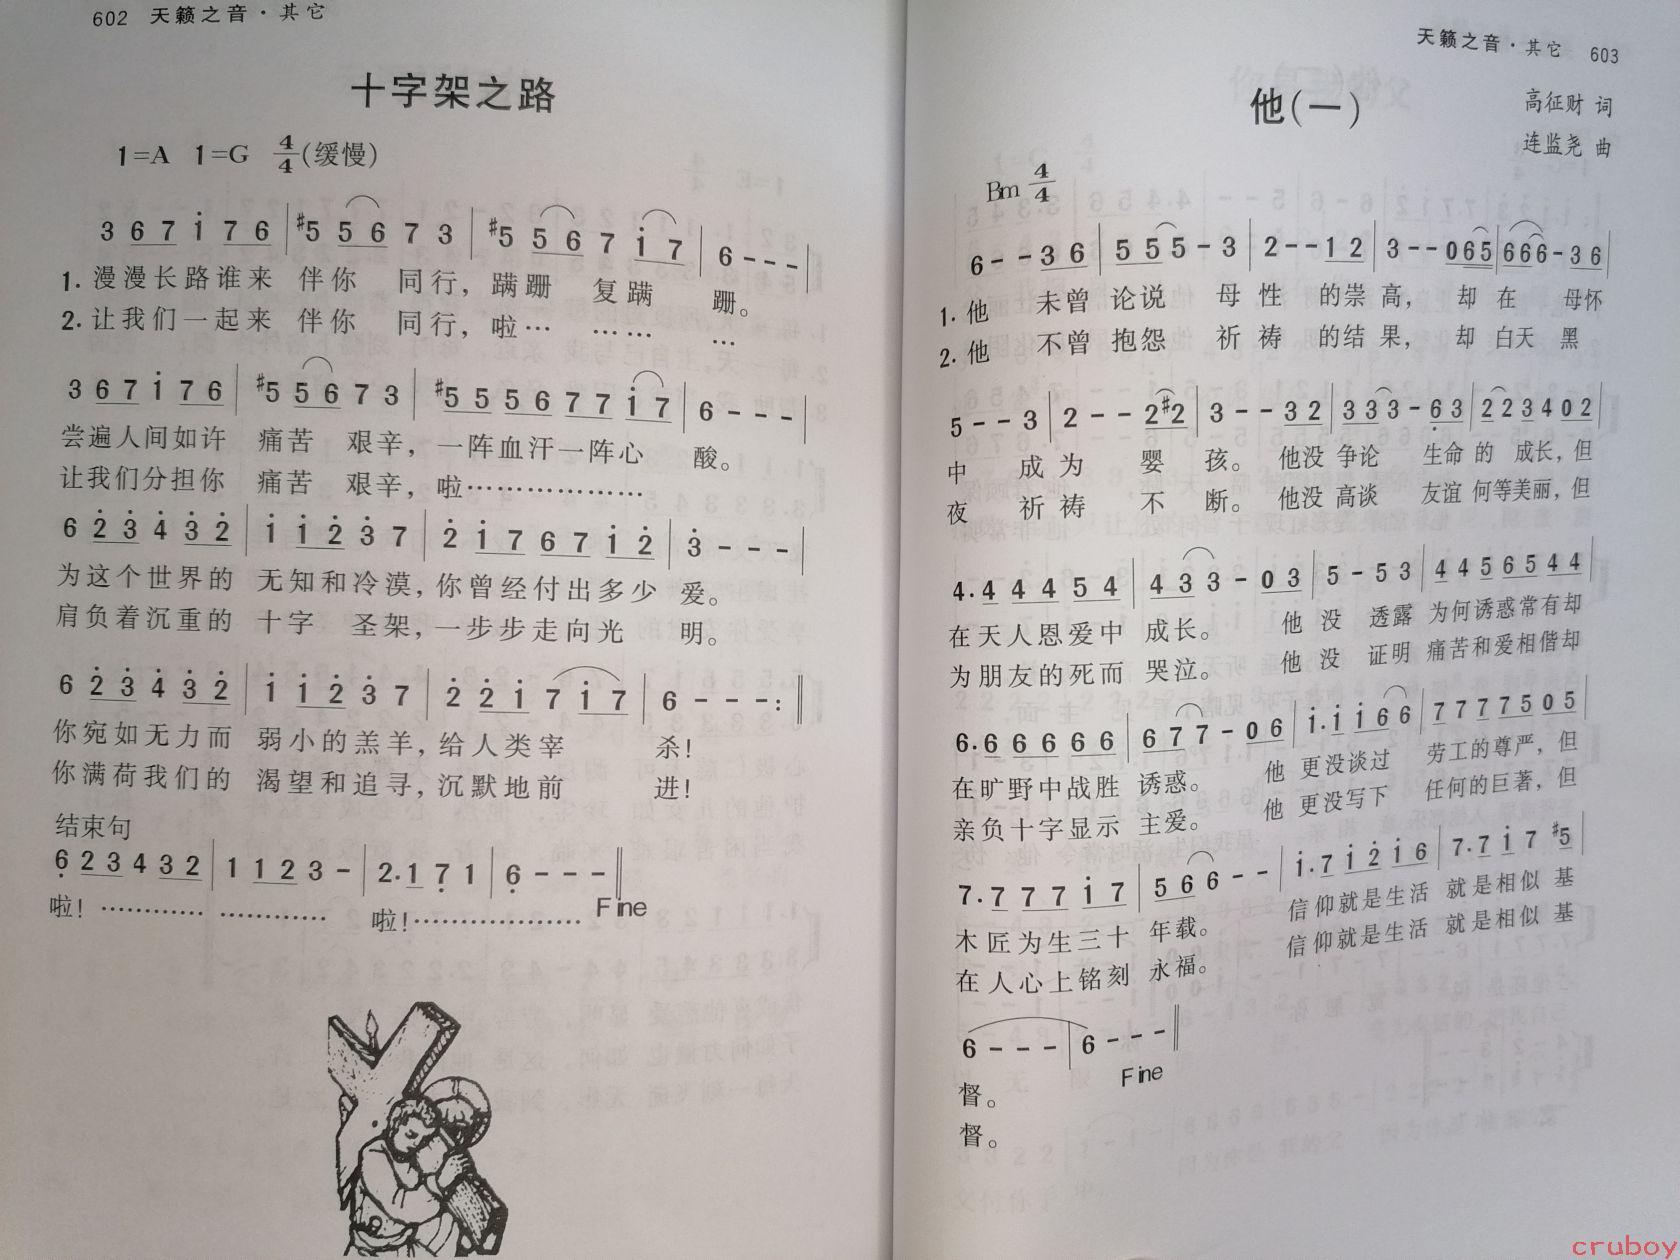 602 天籁之音·其它
十字架之路
1=A 1=G 4/4(缓慢)
3 6 7 i 7 6 | #5 5 6 7 3 | #5 5 6 7 i 7 | 6 - - - |
1. 漫漫长路谁来 伴你 同行，蹒跚 复蹒 跚。
2. 让我们一起来 伴你 同行，啦… …… …
3 6 7 i 7 6 | #5 5 6 7 3 | #5 5 5 6 7 7 i 7 | 6 - - - |
尝遍人间如许 痛苦 艰辛，一阵血汗一阵心 酸。
让我们分担你 痛苦 艰辛，啦………………
6 2̇ 3̇ 4̇ 3̇ 2̇ | i i 2̇ 3̇ 7 | 2̇ i 7 6 7 i 2̇ | 3̇ - - - |
为这个世界的 无知和冷漠，你曾经付出多少 爱。
肩负着沉重的 十字 圣架，一步步走向光 明。
6 2̇ 3̇ 4̇ 3̇ 2̇ | i i 2̇ 3̇ 7 | 2̇ 2̇ i 7 i 7 | 6 - - - :‖
你宛如无力而 弱小的羔羊，给人类宰 杀！
你满荷我们的 渴望和追寻，沉默地前 进！
结束句
6̣ 2 3 4 3 2 | 1 1 2 3 - | 2. 1 7̣ 1 | 6̣ - - - ‖
啦！………… ………… 啦！……………… Fine
天籁之音·其它 603
他(一)
高征财 词
连监尧 曲
Bm 4/4
6 - - 3 6 | 5 5 5 - 3 | 2 - - 1 2 | 3 - - 0 6 5 | 6 6 6 - 3 6 |
1. 他 未曾 论说 母 性 的崇 高， 却 在 母怀
2. 他 不曾 抱怨 祈 祷 的结 果， 却 白天 黑
5 - - 3 | 2 - - 2 #2 | 3 - - 3 2 | 3 3 3 - 6̣ 3 | 2 2 3 4 0 2 |
中 成 为 婴 孩。 他没 争论 生命 的 成长，但
夜 祈 祷 不 断。 他没 高谈 友谊 何等美丽，但
4. 4 4 4 5 4 | 4 3 3 - 0 3 | 5 - 5 3 | 4 4 5 6 5 4 4 |
在天人恩爱中 成长。 他 没 透露 为何诱惑常有却
为朋友的死而 哭泣。 他 没 证明 痛苦和爱相偕却
6. 6 6 6 6 6 | 6 7 7 - 0 6 | i. i i 6 6 | 7 7 7 7 5 0 5 |
在旷野中战胜 诱惑。 他 更没谈过 劳工的尊严，但
亲负十字显示 主爱。 他 更没写下 任何的巨著，但
7. 7 7 7 i 7 | 5 6 6 - - | i. 7 i 2̇ i 6 | 7. 7 i 7 #5 |
木匠为生三十 年载。 信仰就是生活 就是相似 基
在人心上铭刻 永福。 信仰就是生活 就是相似 基
6 - - - | 6 - - - ‖
Fine
督。
督。
cruboy